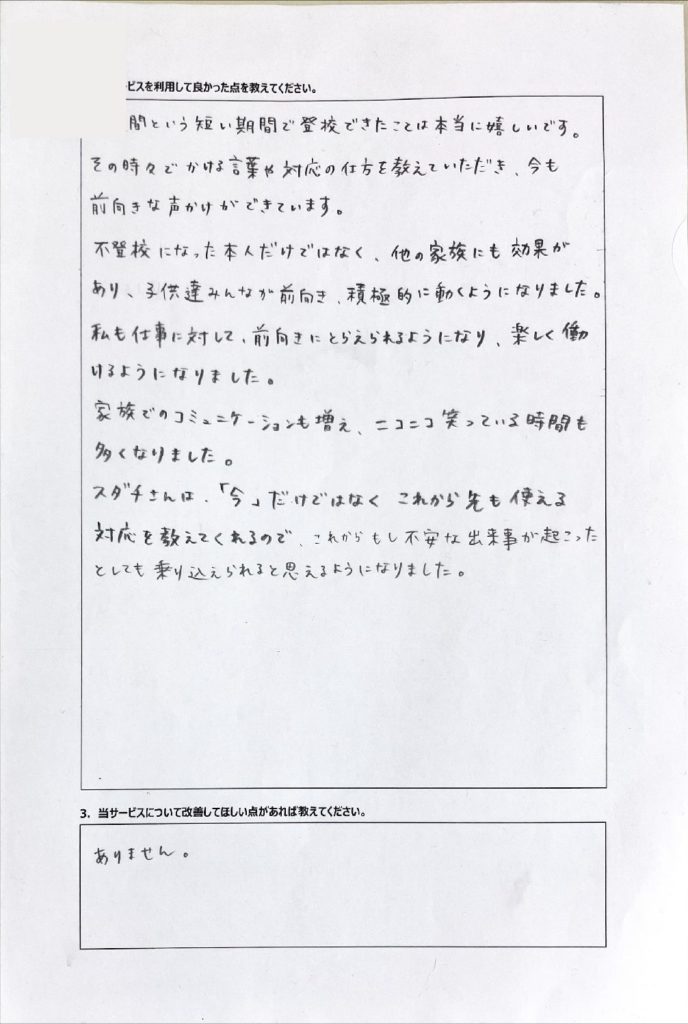 ービスを利用して良かった点を教えてください。
間という短い期間で登校できたことは本当に嬉しいです。
その時々でかける言葉や対応の仕方を教えていただき、今も
前向きな声かけができています。
不登校になった本人だけではなく、他の家族にも効果が
あり、子供達みんなが前向き、積極的に動くようになりました。
私も仕事に対して、前向きにとらえられるようになり、楽しく働
けるようになりました。
家族でのコミュニケーションも増え、ニコニコ笑っている時間も
多くなりました。
スダチさんは、「今」だけではなく これから先も使える
対応を教えてくれるので、これからもし不安な出来事が起こった
としても乗り込えられると思えるようになりました。
3. 当サービスについて改善してほしい点があれば教えてください。
ありません。